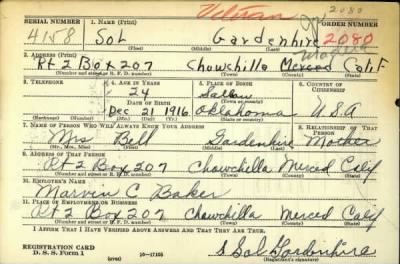 Veteran 2080
SERIAL NUMBER 1. NAME (Print) ORDER NUMBER
4158 Sol Gardenhire 2080
(First) (Middle) (Last)
2. ADDRESS (Print)
Rt 2 Box 207 Chowchilla Merced Calif
(Number and street or R. F. D. number) (Town) (County) (State)
3. TELEPHONE 4. AGE IN YEARS 5. PLACE OF BIRTH 6. COUNTRY OF CITIZENSHIP
24
DATE OF BIRTH (Town or county)
Dec 21 1916 Oklahoma U.S.A
(Exchange) (Number) (Mo.) (Day) (Yr.) (State or country)
7. NAME OF PERSON WHO WILL ALWAYS KNOW YOUR ADDRESS 8. RELATIONSHIP OF THAT PERSON
Mrs Bell Gardenhire Mother
(Mr., Mrs., Miss) (First) (Middle) (Last)
9. ADDRESS OF THAT PERSON
Rt 2 Box 207 Chowchilla Merced Calif
(Number and street or R. F. D. number) (Town) (County) (State)
10. EMPLOYER'S NAME
Marvin C Baker
11. PLACE OF EMPLOYMENT OR BUSINESS
Rt 2 Box 207 Chowchilla Merced Calif
(Number and street or R. F. D. number) (Town) (County) (State)
I AFFIRM THAT I HAVE VERIFIED ABOVE ANSWERS AND THAT THEY ARE TRUE.
REGISTRATION CARD
D. S. S. Form 1 (over) 16-17105 S Sol Gardenhire
(Registrant's signature)